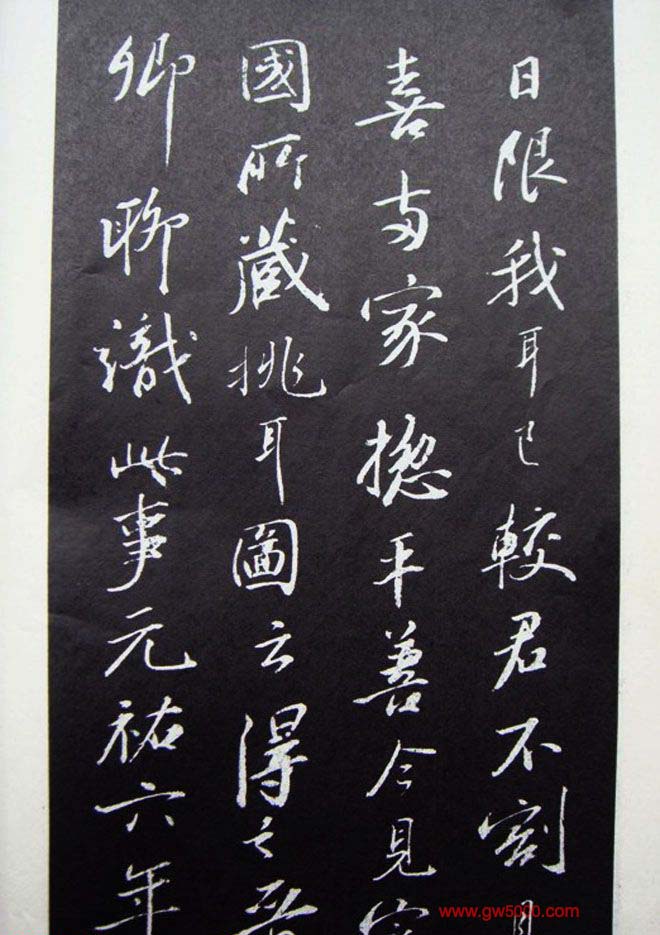 日限我耳已較君不割且
喜兩家揔平善今見定
國所藏挑耳圖云得之晉
卿聊識此事元祐六年
www.gw5000.com